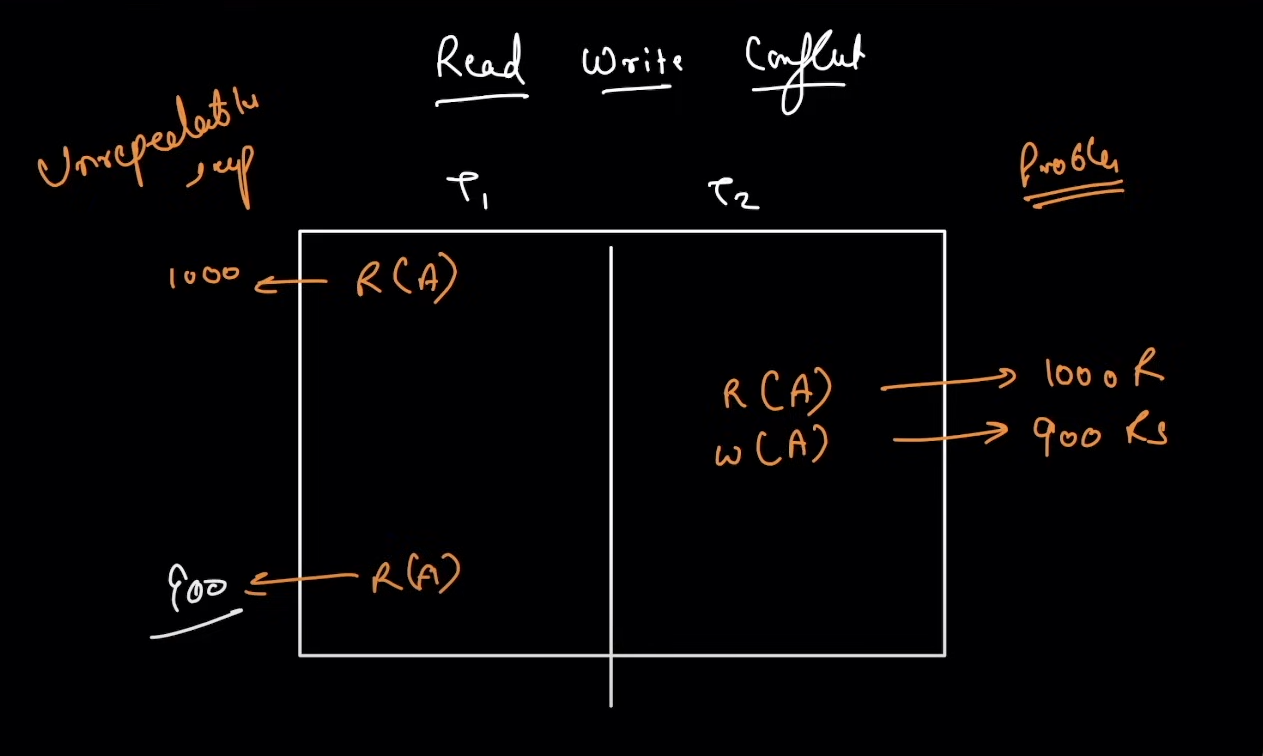 Read Write Conflict
Unrepeatable
T1 T2
Problem
1000 ← R(A)
R(A) → 1000 R
W(A) → 900 Rs
900 ← R(A)